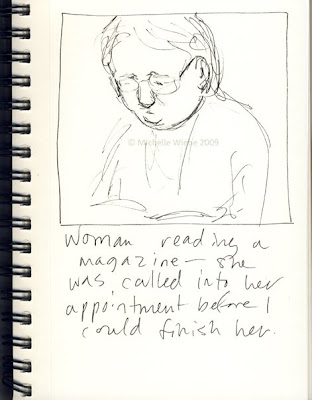 © Michelle Wiebe 2009
Woman reading a
magazine — she
was called into her
appointment before I
could finish her.